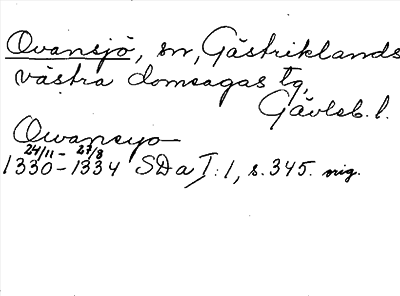 Ovansjö, sn, Gästriklands
västra domsagas tg,
Gävleb. l.
Owansyo
24/11 - 27/8
1330-1334 SDa I:1, s. 345. mig.